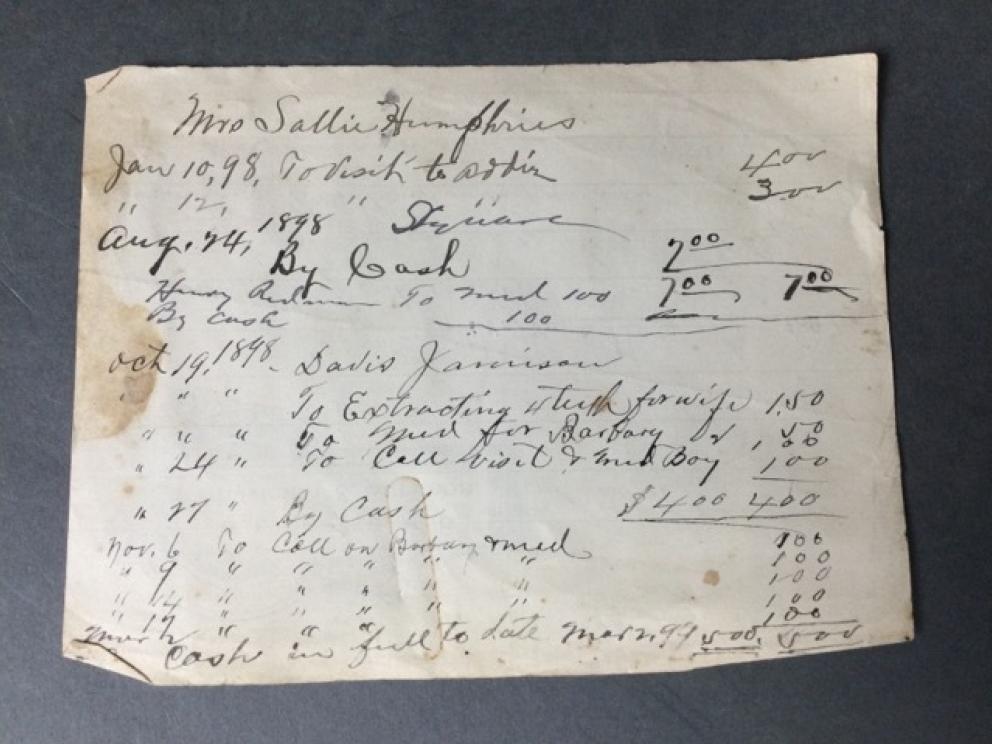 Mrs Sallie Humphries
Jan 10, 98, To visit to 4 00
" 12, " " 3 00
Aug. 24, 1898 Square
By Cash 7 00
Henry To med 100 7 00 7 00
By cash 100
Oct 19, 1898 - Davis Jamison
" " " To Extracting 4 teeth for wife 1.50
" " " To Med for Barbary 50
" 24 " To Call visit & med Boy 1 00
1 00
" 27 " By Cash $4 00 4 00
Nov. 6 To Call on Barbary & med 1 00
" 9 " " " " " 1 00
" 14 " " " " " 1 00
" 17 " " " 1 00
1 00
Mar 2 Cash in full to date Mar 2, 99 5 00 5 00